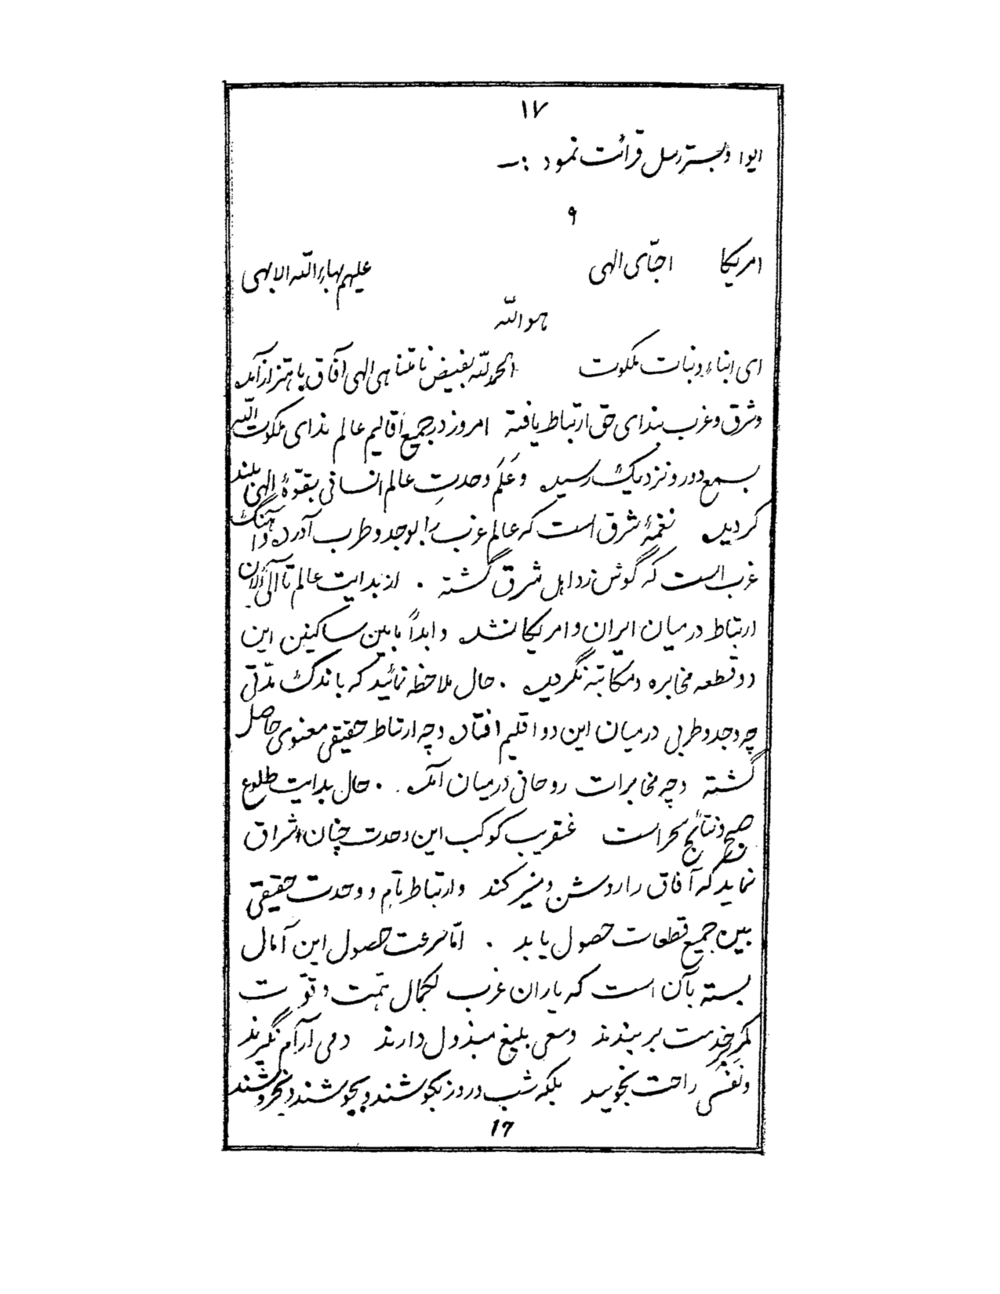 ۱۷
ایوا وبستررسل قرائت نمود :—
۹
امریکا احبّای الهی علیهم بهاءالله الابهی
هوالله
ای ابناء و بنات ملکوت الحمدلله بفیض نامتناهی الهی آفاق باهتزاز آمد
و شرق و غرب بندای حق ارتباط یافته امروز در جمیع اقالیم عالم ندای ملکوت الله
بسمع دور و نزدیک رسید و عَلَم وحدتِ عالم انسانی بقوّهٔ الهی بلند
گردید نغمهٔ شرق است که عالم غرب را بوجد و طرب آورده و آهنگ
غرب است که گوش زد اهل شرق گشته ۰ از بدایت عالم تا الی الان
ارتباط در میان ایران و امریکا نشد و ابداً مابین ساکنین این
دو قطعه مخابره و مکاتبه نگردید ۰ حال ملاحظه نمائید که باندک مدّتی
چه وجد و طربی در میان این دو اقلیم افتاد و چه ارتباط حقیقی معنوی حاصل
گشته و چه مخابرات روحانی در میان آمد ۰ حال بدایت طلوع
صبح و نتائج سحر است عنقریب کوکب این وحدت چنان اشراق
نماید که آفاق را روشن و منیر کند و ارتباط تام و وحدت حقیقی
بین جمیع قطعات حصول یابد ۰ امّا سرعت حصول این آمال
بسته بآن است که یاران غرب بکمال همّت و قوّت
کمرِ خدمت بر بندند و سعی بلیغ مبذول دارند دمی آرام نگیرند
و نفسی راحت نجویند بلکه شب و روز بکوشند و بجوشند و بخروشند
17